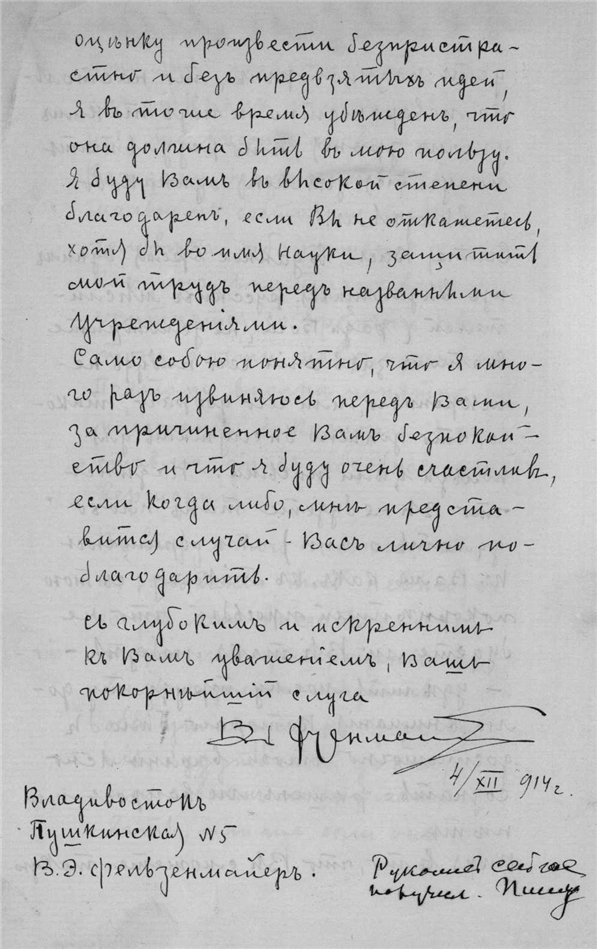 оцѣнку произвести безпристра-
стно и безъ предвзятыхъ идей,
я въ тоже время убѣжденъ, что
она должна быть въ мою пользу.
Я буду Вамъ въ высокой степени
благодаренъ, если Вы не откажетесь,
хотя бы во имя науки, защитить
мой трудъ передъ названными
учрежденіями.
Само собою понятно, что я мно-
го разъ извиняюсь передъ Вами,
за причиненное Вамъ безпокой-
ство и что я буду очень счастливъ,
если когда либо, мнѣ предста-
вится случай - Васъ лично по-
благодарить.
Съ глубокимъ и искреннимъ
къ Вамъ уваженіемъ, Вашъ
покорнѣйшій слуга
4/XII 914 г.
Владивостокъ
Пушкинская N5
В.Э. Фельзенмайеръ.